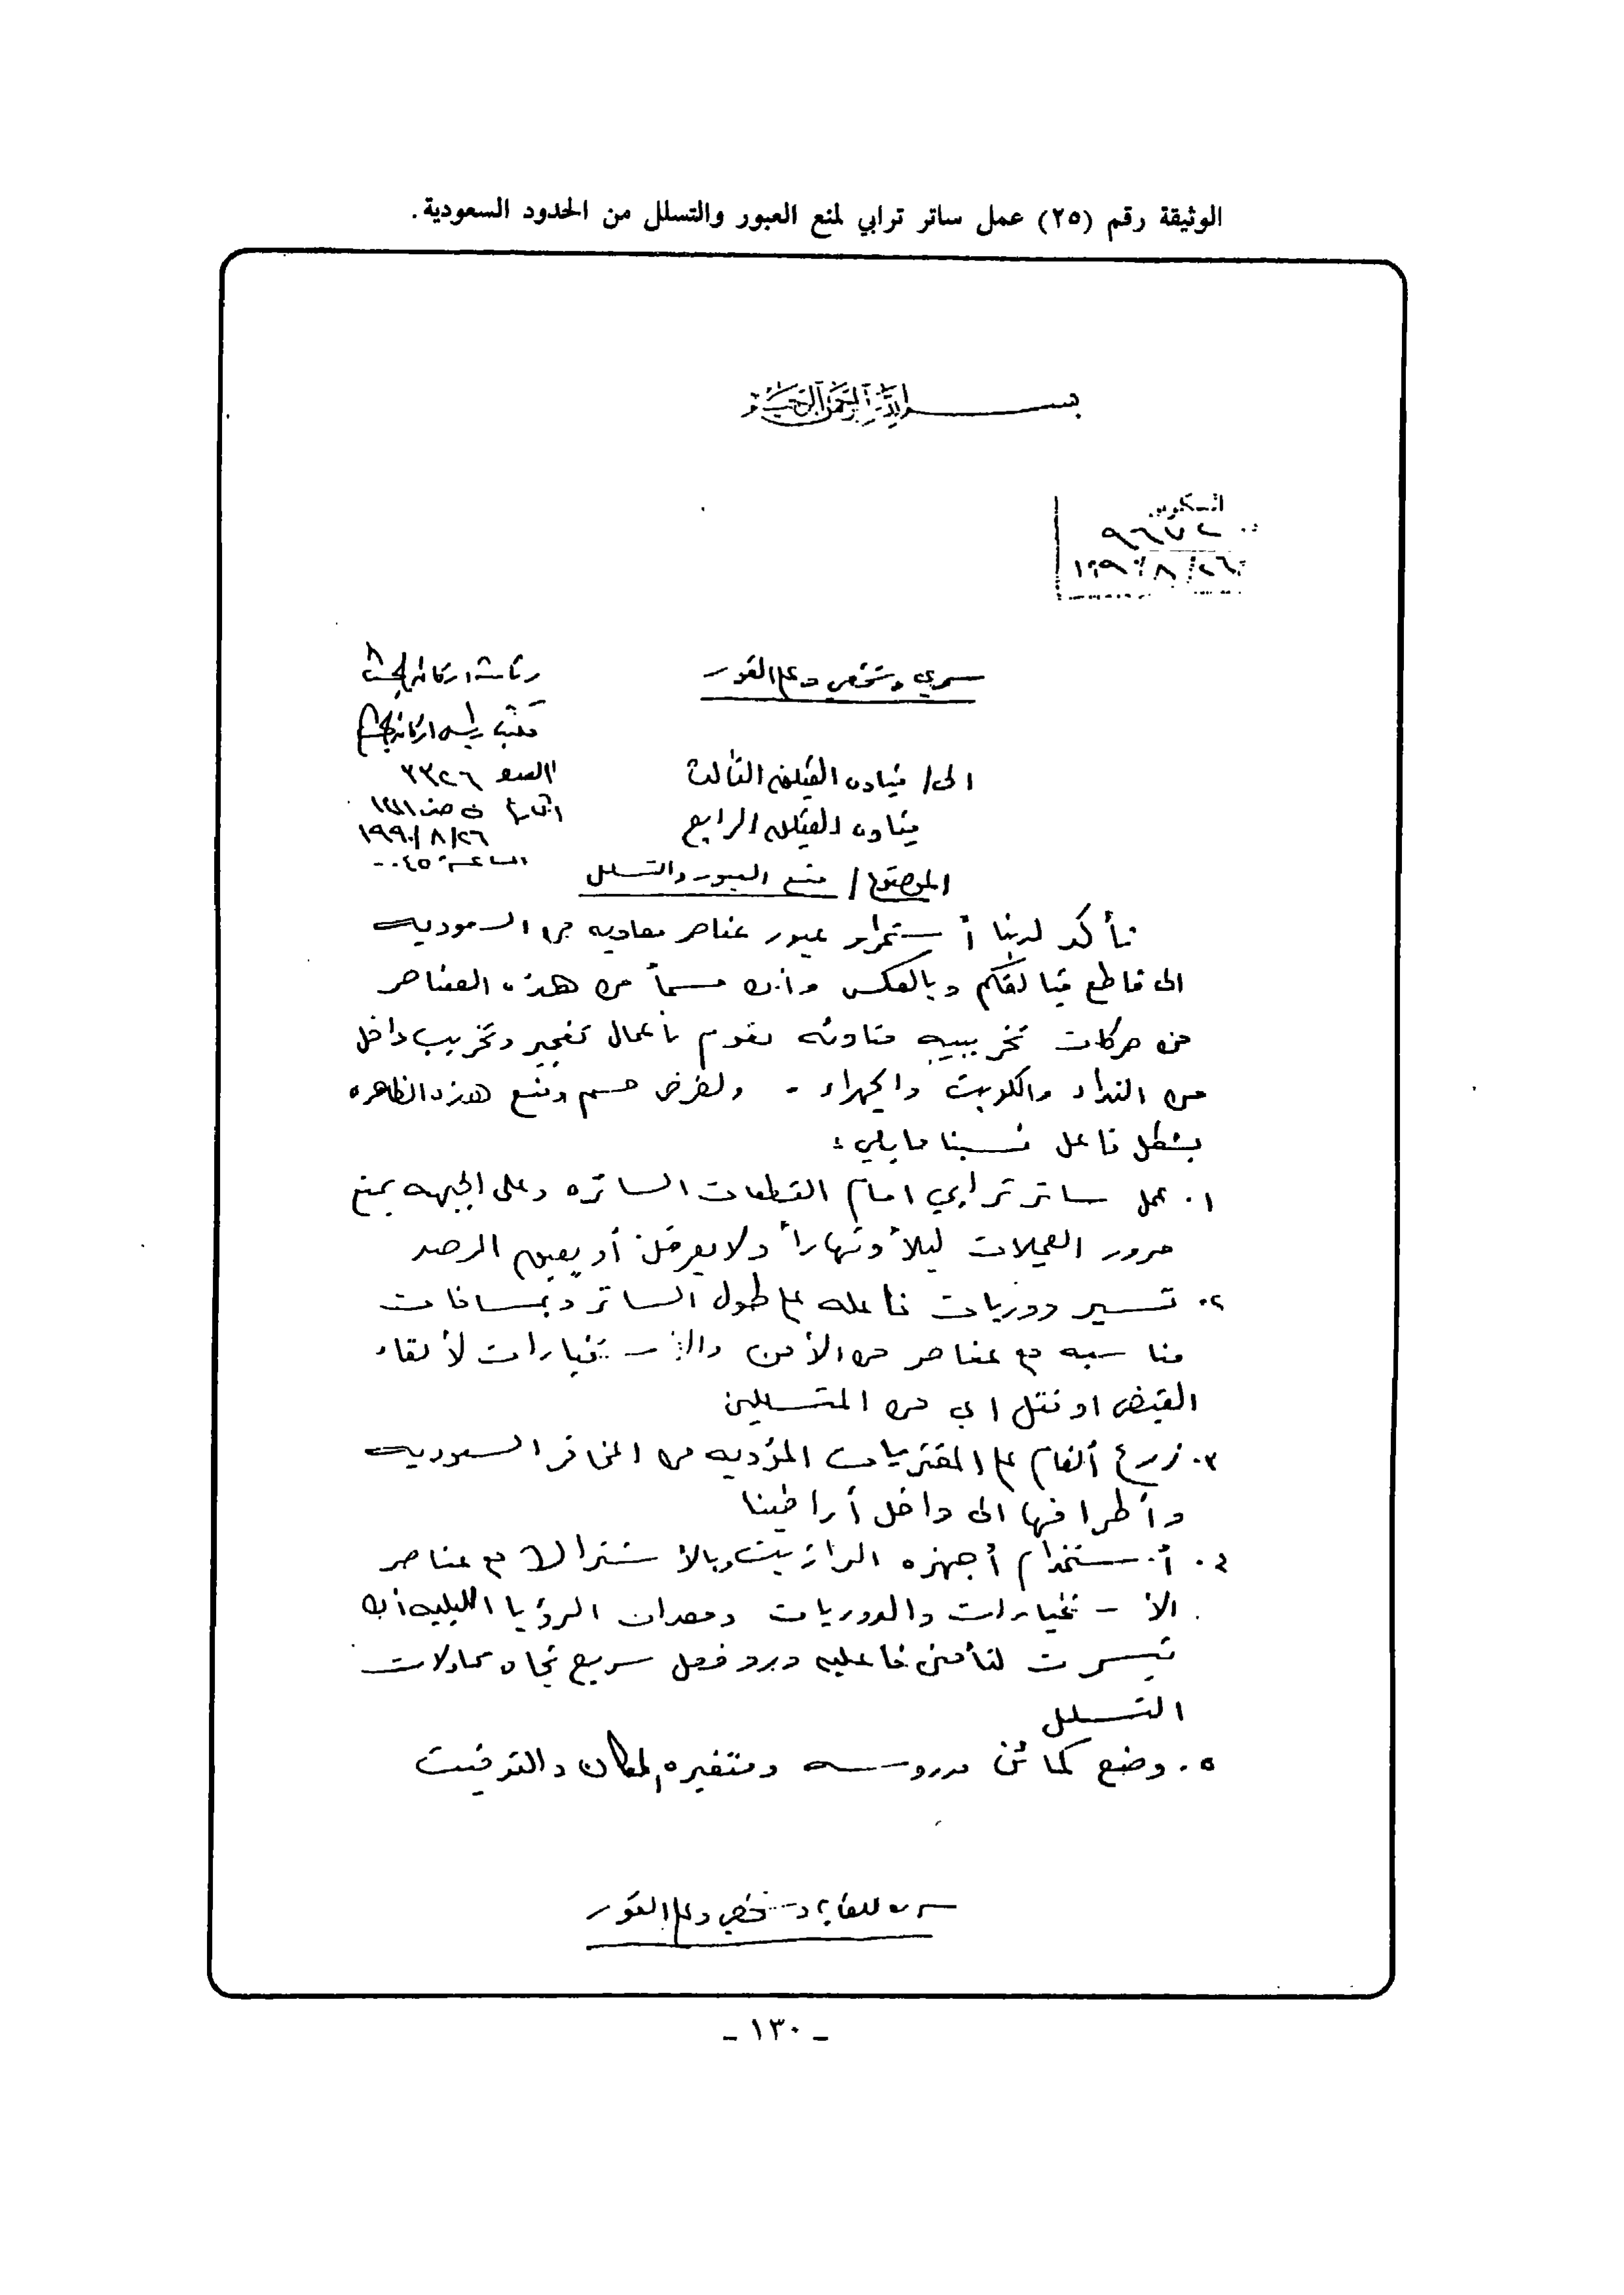 الوثيقة رقم (٢٥) عمل ساتر ترابي لمنع العبور والتسلل من الحدود السعودية.
بسم الله الرحمن الرحيم
٩٦٧٢
٢٦/٨/١٩٩٠
سري وشخصي وعلى الفور
رئاسة اركان الجيش
مكتب رئيس اركان الجيش
الى/ قيادة الفيلق الثالث
العدد ٣٣٢٦
قيادة الفيلق الرابع
التاريخ صفر ١٤١١
٢٦/٨/١٩٩٠
الساعة ٠٠٤٥
الموضوع/ منع العبور والتسلل
تأكد لدينا أستمرار عبور عناصر معاديه من السعوديه
الى قاطع فيالقكم وبالعكس وأن قسماً من هذه العناصر
من حركات تخريبيه مناوئه تقوم بأعمال تفجير وتخريب داخل
من النداء والكويت والجهراء . ولغرض حسم ومنع هذه الظاهره
بشكل فاعل نسبنا مايلي :
١. عمل ساتر ترابي امام القطعات الساتره وعلى الجبهه يمنع
مرور العجلات ليلاً ونهاراً ولا يعرقل أو يعيق الرصد
٢. تسيير دوريات فاعله على طول الساتر وبمسافات
مناسبه مع عناصر من الأمن والأستخبارات لألقاء
القبض او قتل اي من المتسللين
٣. زرع ألغام على المقتربات المؤديه من المخافر السعوديه
وأطرافها الى داخل أراضينا
٤. أستخدام أجهزه الرازيت وبالأشتراك مع عناصر
الأستخبارات والدوريات ومعدات الرؤيا الليليه أن
تيسرت لتأمين فاعليه وبرد فعل سريع تجاه محاولات
التسلل
٥. وضع كمائن مدروسه ومتغيره المكان والتوقيت
سري للغايه وشخصي وعلى الفور
- ١٣٠ -